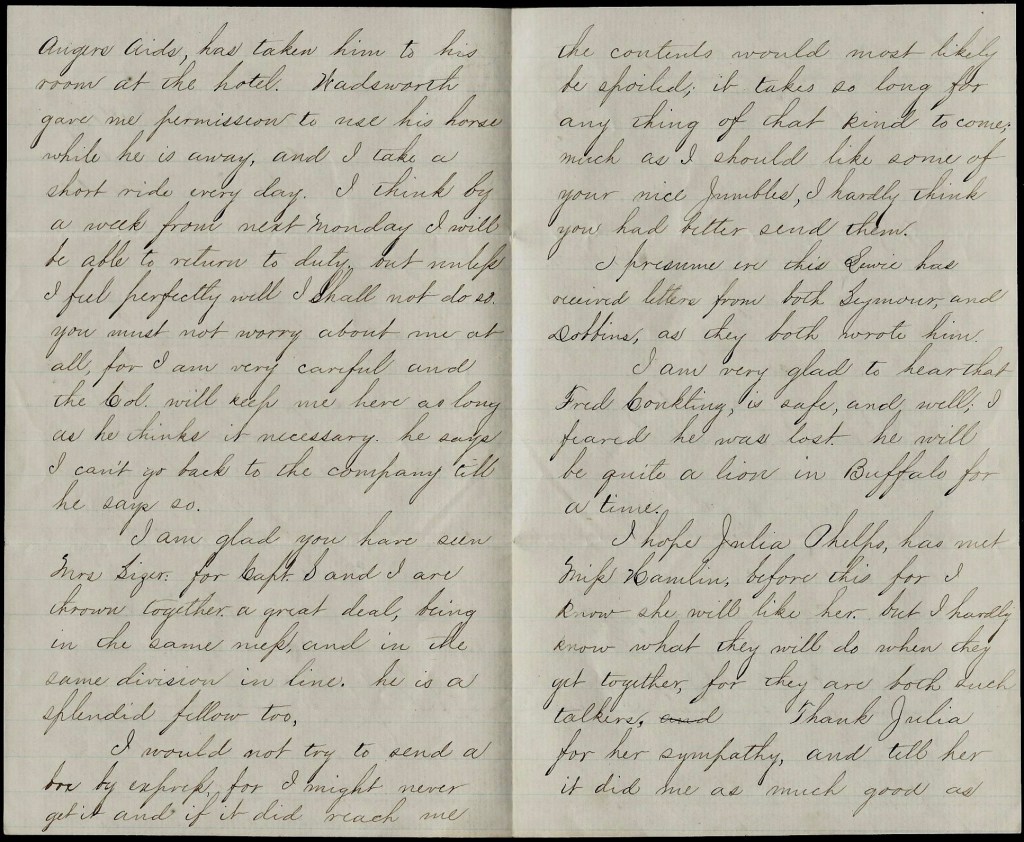 Augers Aids, has taken him to his
room at the hotel. Wadsworth
gave me permission to use his horse
while he is away, and I take a
short ride every day. I think by
a week from next Monday I will
be able to return to duty, but unless
I feel perfectly well I shall not do so.
you must not worry about me at
all, for I am very careful and
the Col. will keep me here as long
as he thinks it necessary. he says
I can't go back to the company till
he says so.
I am glad you have seen
Mrs for Capt. S and I are
thrown together a great deal, being
in the same mess, and in the
same division in line. he is a
splendid fellow too,
I would not try to send a
box by express, for I might never
get it and if it did reach me
the contents would most likely
be spoiled; it takes so long for
any thing of that kind to come;
much as I should like some of
your nice Jumbles, I hardly think
you had better send them.
I presume ere this Lewie has
received letters from both Seymour, and
Dobbins, as they both wrote him.
I am very glad to hear that
Fred Conkling, is safe, and well; I
feared he was lost. he will
be quite a lion in Buffalo for
a time.
I hope Julia Phelps, has met
Miss Hamlin, before this for I
know she will like her. but I hardly
know what they will do when they
get together, for they are both such
talkers, and Thank Julia
for her sympathy, and tell her
it did me as much good as